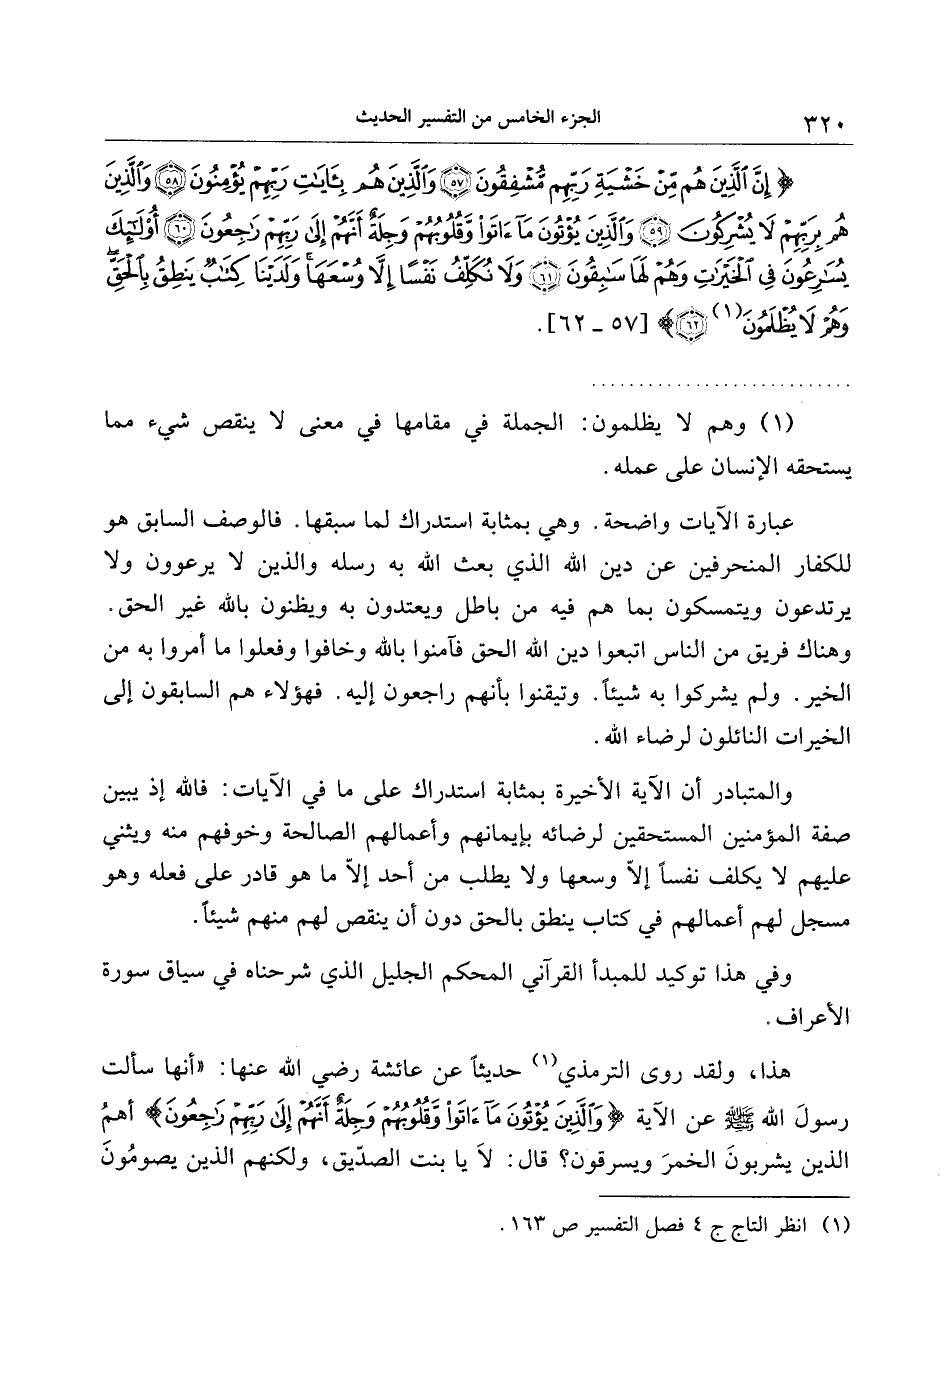 ٣٢٠ الجزء الخامس من التفسير الحديث
﴿ إِنَّ ٱلَّذِينَ هُم مِّنْ خَشْيَةِ رَبِّهِم مُّشْفِقُونَ ﴿٥٧﴾ وَٱلَّذِينَ هُم بِـَٔايَـٰتِ رَبِّهِمْ يُؤْمِنُونَ ﴿٥٨﴾ وَٱلَّذِينَ
هُم بِرَبِّهِمْ لَا يُشْرِكُونَ ﴿٥٩﴾ وَٱلَّذِينَ يُؤْتُونَ مَآ ءَاتَوا۟ وَّقُلُوبُهُمْ وَجِلَةٌ أَنَّهُمْ إِلَىٰ رَبِّهِمْ رَٰجِعُونَ ﴿٦٠﴾ أُو۟لَـٰٓئِكَ
يُسَـٰرِعُونَ فِى ٱلْخَيْرَٰتِ وَهُمْ لَهَا سَـٰبِقُونَ ﴿٦١﴾ وَلَا نُكَلِّفُ نَفْسًا إِلَّا وُسْعَهَا ۖ وَلَدَيْنَا كِتَـٰبٌ يَنطِقُ بِٱلْحَقِّ ۚ
وَهُمْ لَا يُظْلَمُونَ(١) ﴿٦٢﴾ ﴾ [٥٧ ـ ٦٢].
...........................
(١) وهم لا يظلمون: الجملة في مقامها في معنى لا ينقص شيء مما
يستحقه الإنسان على عمله.
عبارة الآيات واضحة. وهي بمثابة استدراك لما سبقها. فالوصف السابق هو
للكفار المنحرفين عن دين الله الذي بعث الله به رسله والذين لا يرعوون ولا
يرتدعون ويتمسكون بما هم فيه من باطل ويعتدون به ويظنون بالله غير الحق.
وهناك فريق من الناس اتبعوا دين الله الحق فآمنوا بالله وخافوا وفعلوا ما أمروا به من
الخير. ولم يشركوا به شيئاً. وتيقنوا بأنهم راجعون إليه. فهؤلاء هم السابقون إلى
الخيرات النائلون لرضاء الله.
والمتبادر أن الآية الأخيرة بمثابة استدراك على ما في الآيات: فالله إذ يبين
صفة المؤمنين المستحقين لرضائه بإيمانهم وأعمالهم الصالحة وخوفهم منه ويثني
عليهم لا يكلف نفساً إلاّ وسعها ولا يطلب من أحد إلاّ ما هو قادر على فعله وهو
مسجل لهم أعمالهم في كتاب ينطق بالحق دون أن ينقص لهم منهم شيئاً.
وفي هذا توكيد للمبدأ القرآني المحكم الجليل الذي شرحناه في سياق سورة
الأعراف.
هذا، ولقد روى الترمذي(١) حديثاً عن عائشة رضي الله عنها: «أنها سألت
رسولَ الله ﷺ عن الآية ﴿ وَٱلَّذِينَ يُؤْتُونَ مَآ ءَاتَوا۟ وَّقُلُوبُهُمْ وَجِلَةٌ أَنَّهُمْ إِلَىٰ رَبِّهِمْ رَٰجِعُونَ ﴾ أهمُ
الذين يشربونَ الخمرَ ويسرقون؟ قال: لاَ يا بنت الصدّيق، ولكنهم الذين يصومُونَ
(١) انظر التاج ج ٤ فصل التفسير ص ١٦٣.